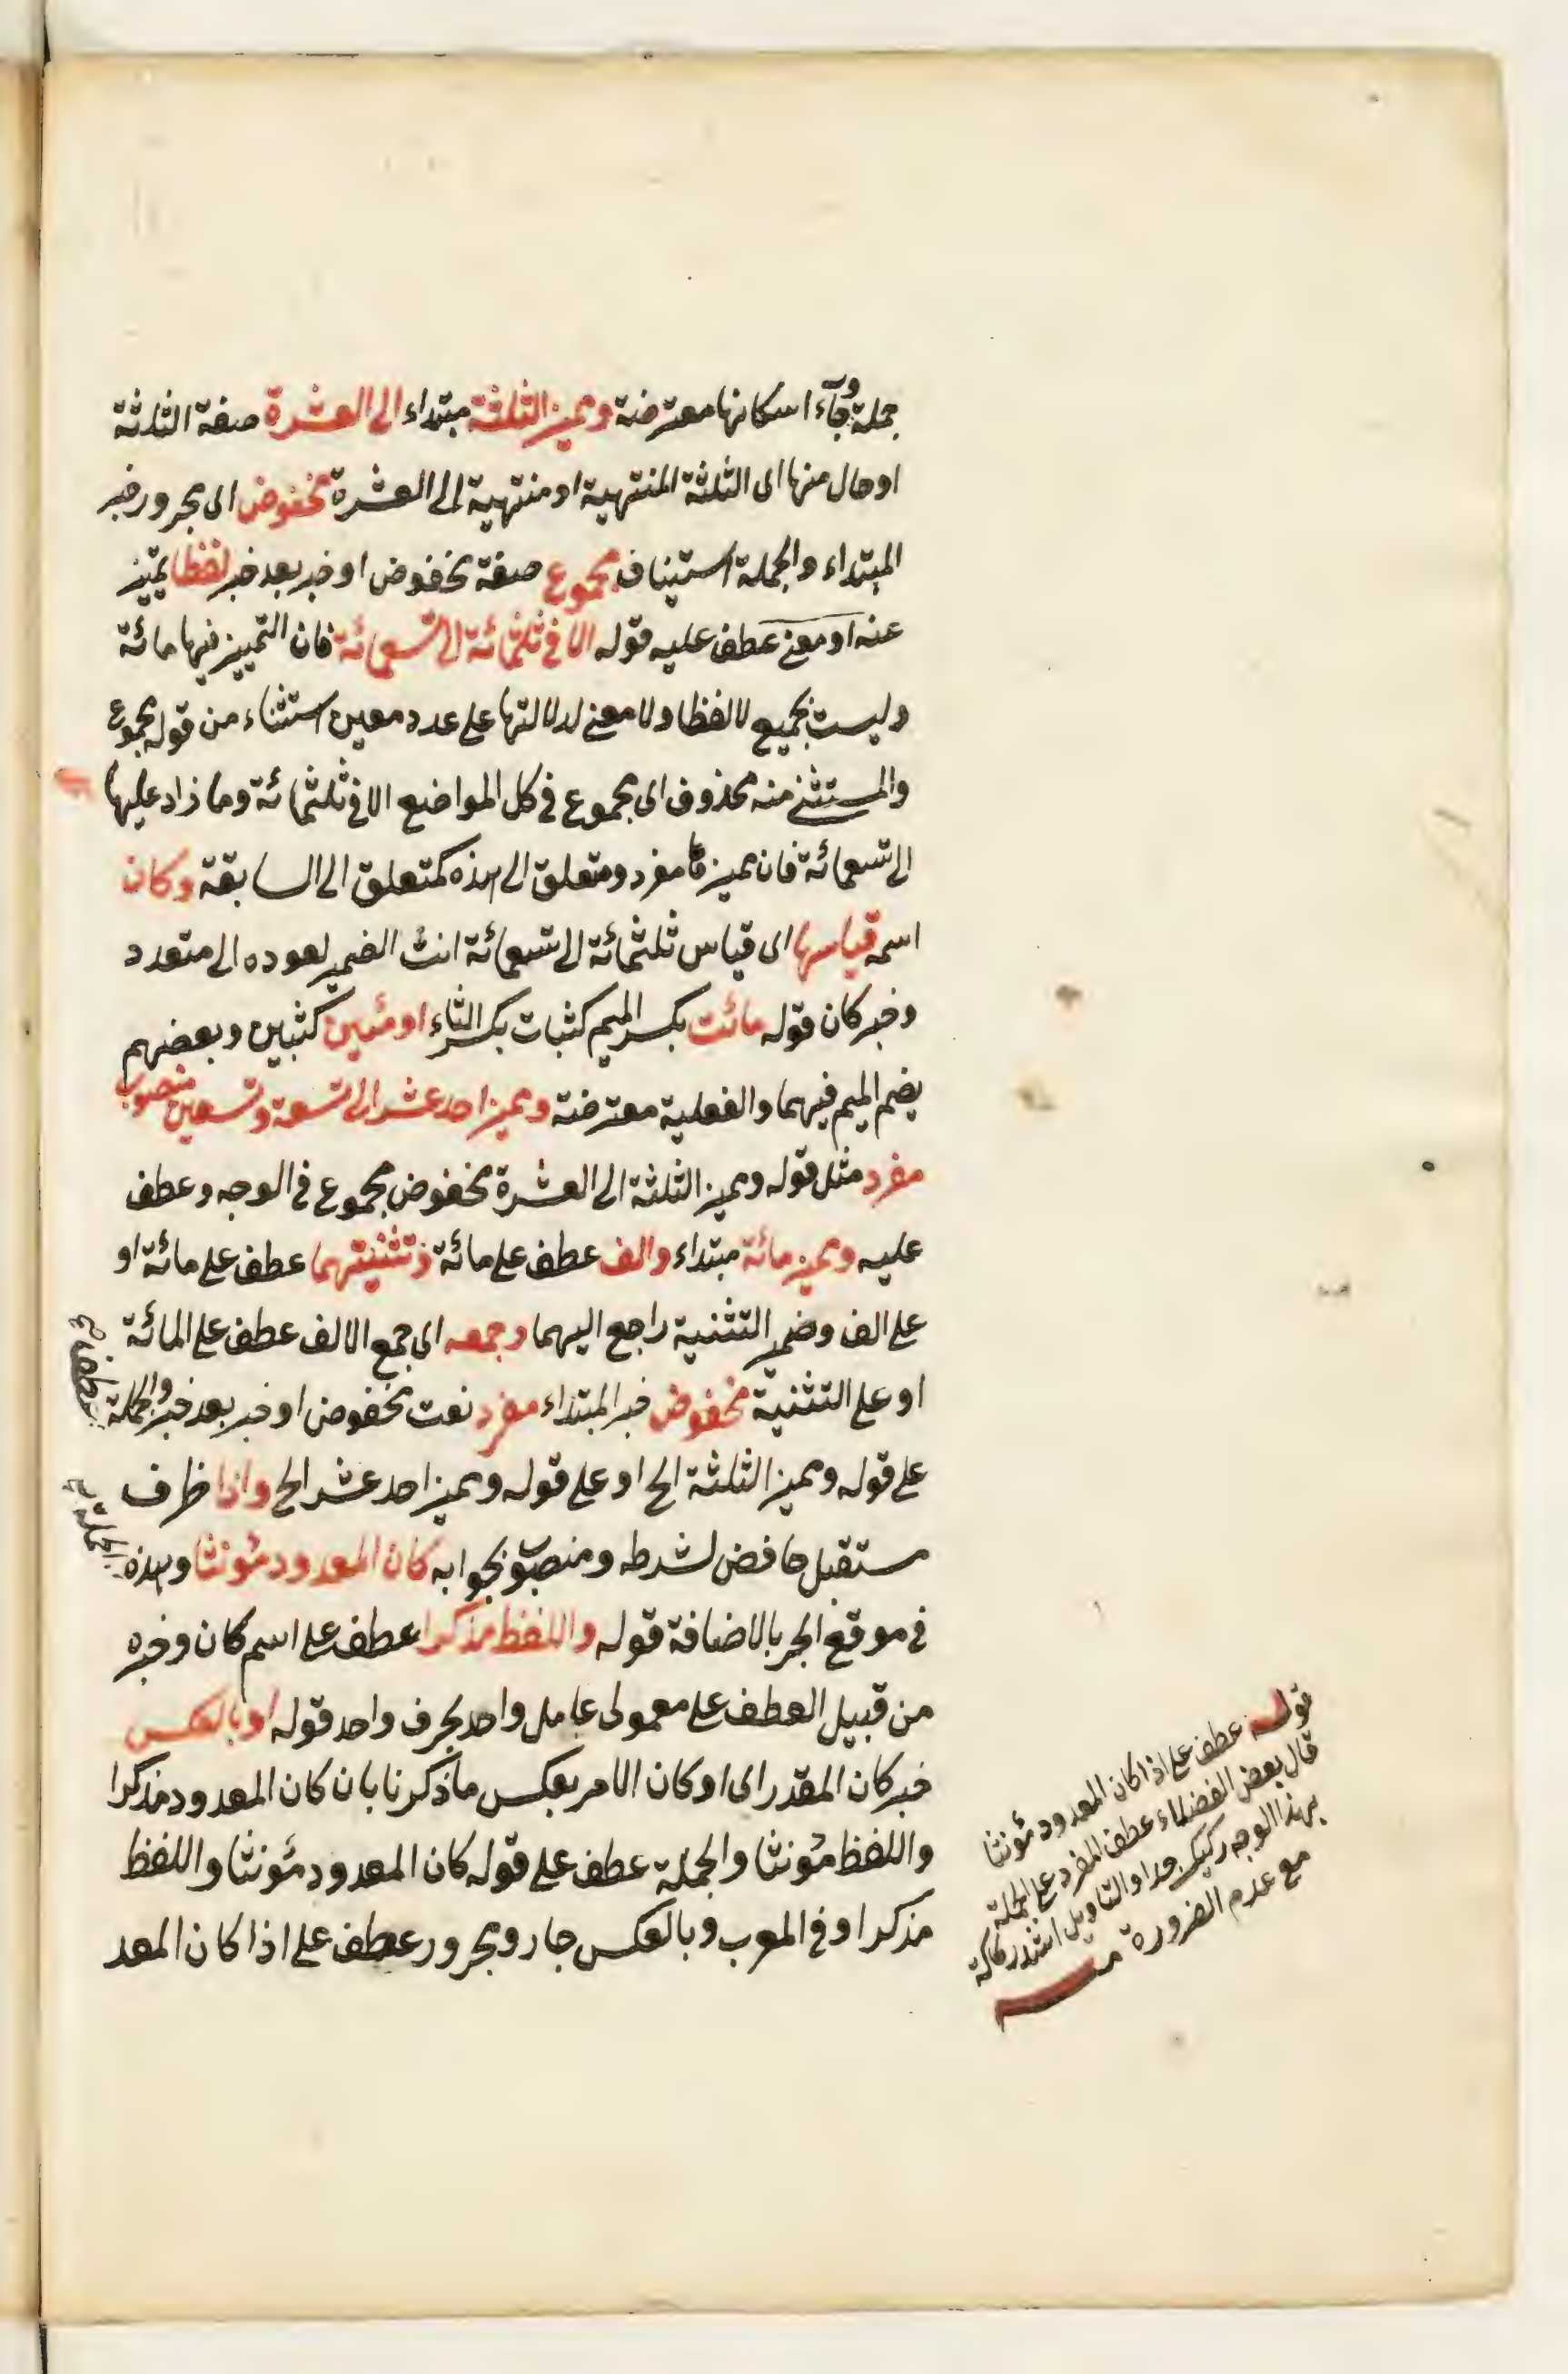 جملة وجاء اسكانها معترضة ومميز الثلثة مبتداء الى العشرة صفة الثلثة
او حال منها اى الثلثة المنتهية او منتهية الى العشرة مخفوض اى مجرور خبر
المبتداء والجملة استيناف مجموع صفة مخفوض او خبر بعد خبر لفظا تمييز
عنه او معنى عطف عليه قوله الا فى ثلثمائة الى تسعمائة فان التمييز فيها مائة
وليست بجميع لا لفظا ولا معنى لدلالتها على عدد معين استثناء من قوله مجموع
والمستثنى منه محذوف اى مجموع فى كل المواضع الا فى ثلثمائة وما زاد عليها
الى تسعمائة فان مميزها مفرد ومتعلق الى هذه كمتعلق الى السابقة وكان
اسمه قياسها اى قياس ثلثمائة الى تسعمائة انث الضمير لعوده الى متعدد
وخبر كان قوله مائت بكسر الميم كثبات بكسر الثاء او مئين كثبين وبعضهم
يضم الميم فيهما والفعلية معترضة ومميز احد عشر الى تسعة وتسعين منصوب
مفرد مثل قوله ومميز الثلثة الى العشرة مخفوض مجموع فى الوجه وعطف
عليه ومميز مائة مبتداء والف عطف على مائة وتثنيتهما عطف على مائة او
على الف وضمير التثنية راجع اليهما وجمعه اى جمع الالف عطف على المائة
او على التثنية مخفوض خبر المبتداء مفرد نعت مخفوض او خبر بعد خبر والجملة
عطف صح
على قوله ومميز الثلثة الخ او على قوله ومميز احد عشر الخ واذا ظرف
مستقبل خافض لشرطه ومنصوب بجوابه كان المعدود مؤنثا وهذه
الجملة صح
فى موقع الجر بالاضافة قوله واللفظ مذكرا عطف على اسم كان وخبره
من قبيل العطف على معمولى عامل واحد بحرف واحد قوله او بالعكس
خبر كان المقدر اى او كان الامر بعكس ما ذكرنا بان كان المعدود مذكرا
واللفظ مؤنثا والجملة عطف على قوله كان المعدود مؤنثا واللفظ
مذكرا وفى المعرب وبالعكس جار ومجرور عطف على اذا كان المعد
قوله عطف على اذا كان المعدود مؤنثا
قال بعض الفضلاء عطف المفرد على الجملة
بهذا الوجه ركيك جدا والتاويل اشد ركاكة
مع عدم الضرورة